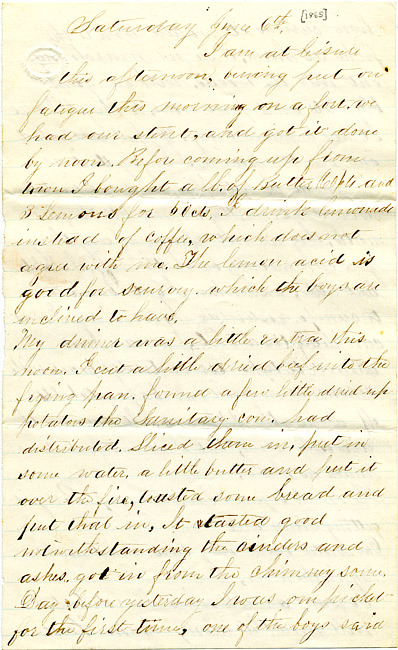 Saturday June 6th. [1865]
I am at leisure
this afternoon, being put on
fatigue this morning on a fort. we
had our stint, and got it done
by noon. Before coming up from
town I bought a lb. of Butter and
3 Lemons for 50cts. I drink lemonade
instead of coffe, which does not
agree with me. The lemon acid is
good for scurvey which the boys are
inclined to have.
My dinner was a little extra this
noon. I cut a little dried beef into the
frying pan. found a few little dried up
potatoes the Sanitary com. had
distributed. Sliced them in, put in
some water, a little butter and put it
over the fire, toasted some bread and
put that in, It tasted good
notwithstanding the cinders and
ashes. got in from the chimney some.
Day before yesterday I was on picket
for the first time, one of the boys said